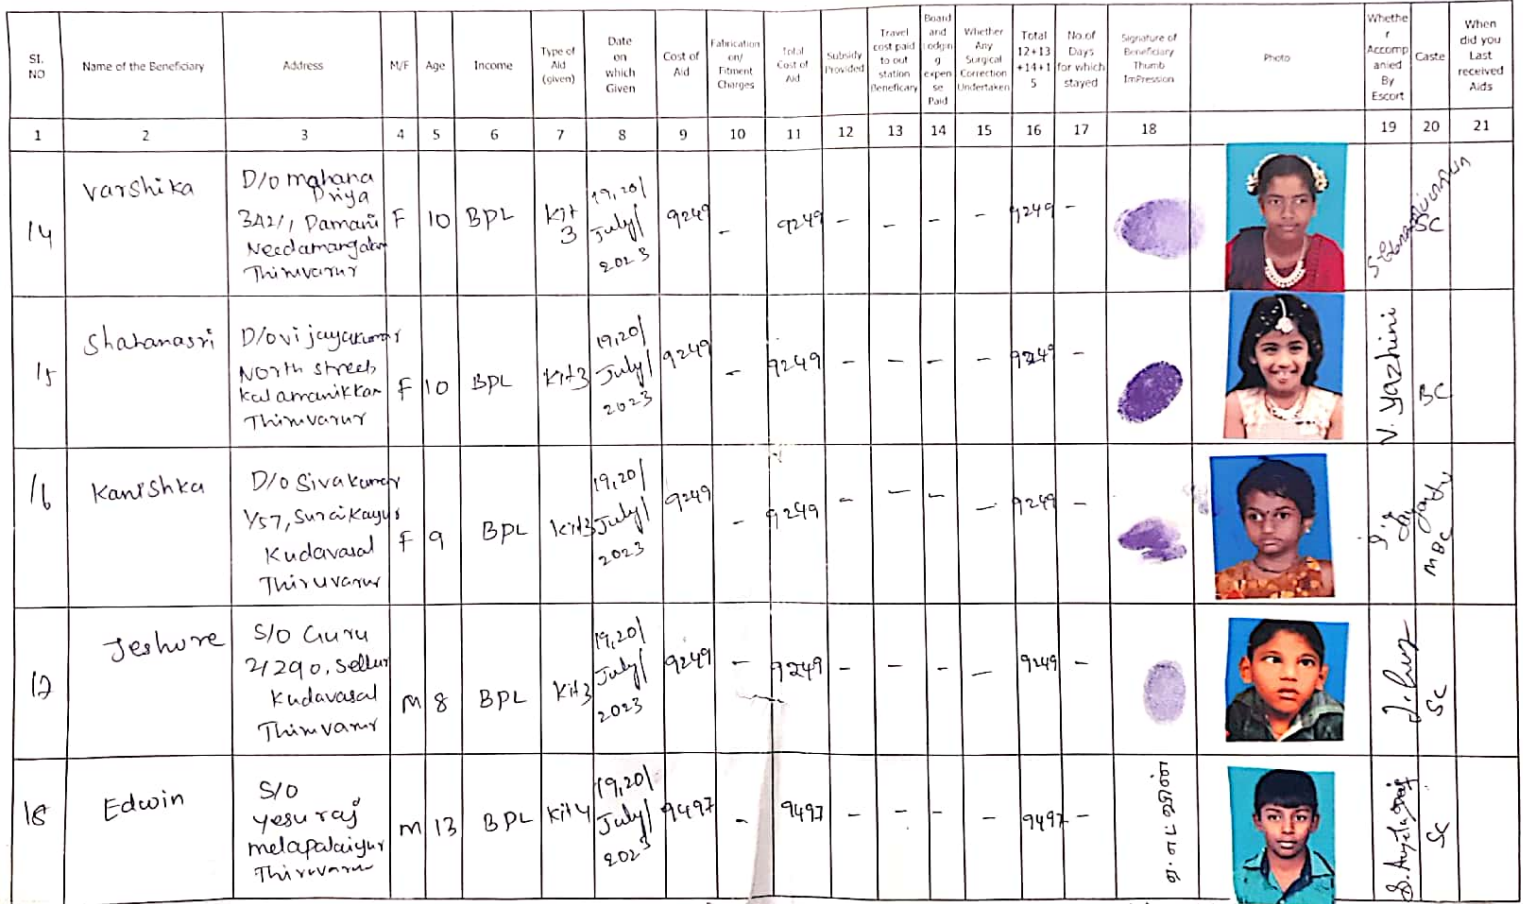 Sl. NO
Name of the Beneficiary
Address
M/F
Age
Income
Type of Aid (given)
Date on which Given
Cost of Aid
Fabrication on/ Fitment Charges
Total Cost of Aid
Subsidy Provided
Travel cost paid to out station Beneficiary
Board and lodging expense Paid
Whether Any Surgical Correction Undertaken
Total 12+13+14+15
No.of Days for which stayed
Signature of Beneficiary Thumb ImPression
Photo
Whether Accompanied By Escort
Caste
When did you Last received Aids
1 2 3 4 5 6 7 8 9 10 11 12 13 14 15 16 17 18 19 20 21
14 Varshika
D/o mahana
Priya
3A2/1 Damani
Needamangalam
Thiruvarur
F 10 BPL Kit 3 19,20/ July/ 2023 9249 - 9249 - - - - 9249 - SC
15 Shahanasri
D/o vijayakumar
North street,
Kalamanikkan
Thiruvarur
F 10 BPL Kit3 19,20/ July/ 2023 9249 - 9249 - - - - 9249 - V. Yazhini BC
16 Kanishka
D/o Sivakumar
1/57, Suraikayur
Kudavasal
Thiruvarur
F 9 BPL kit3 19,20/ July/ 2023 9249 - 9249 - - - - 9249 - MBC
17 Jeshure
S/O Guru
2/290, Sellur
Kudavasal
Thiruvarur
M 8 BPL Kit3 19,20/ July/ 2023 9249 - 9249 - - - - 9249 - SC
18 Edwin
S/O
Yesuraj
melapalaiyur
Thiruvarur
M 13 BPL Kit4 19,20/ July/ 2023 9497 - 9497 - - - - 9497 - SC